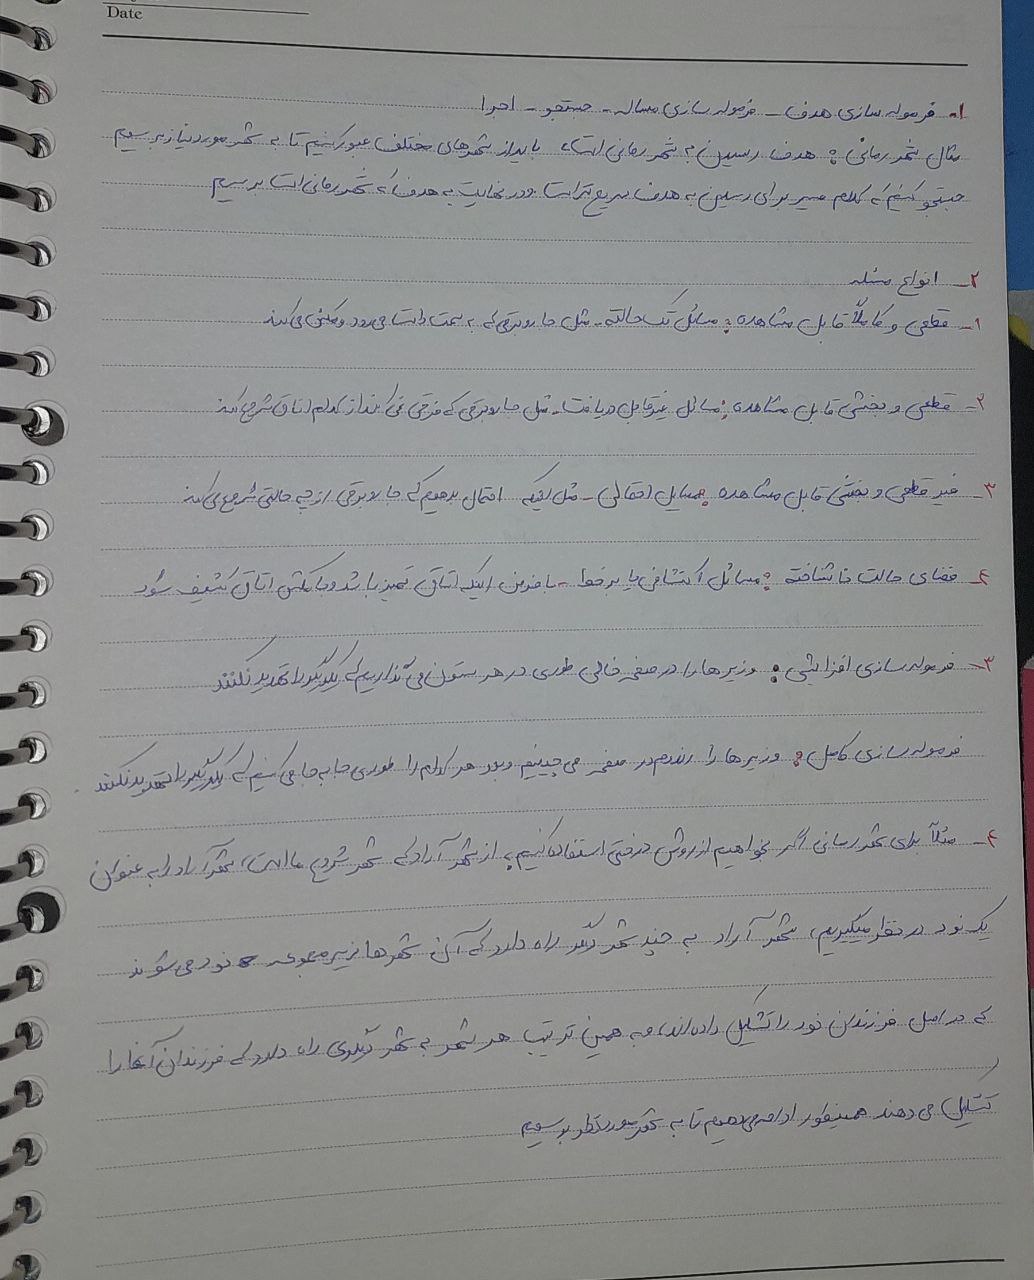 Date
۱- فرموله سازی هدف - فرموله سازی مساله - جستجو - اجرا
مثال شهر رمانی: هدف رسیدن به شهر رمانی است، باید از شهرهای مختلف عبور کنیم تا به شهر مورد نیاز برسیم
جستجو کنیم که کدام مسیر برای رسیدن به هدف سریع تر است و در نهایت به هدف که شهر رمانی است برسیم
۲- انواع مسئله
۱- قطعی و کاملاً قابل مشاهده: مسائل تک حالته - مثل جاروبرقی که به سمت راست می رود و مکش می کند
۲- قطعی و بخشی قابل مشاهده: مسائل غیرقابل دریافت - مثل جاروبرقی که فرقی نمی کند از کدام اتاق شروع کند
۳- غیر قطعی و بخشی قابل مشاهده: مسایل احتمالی - مثل اینکه احتمال بدهیم که جاروبرقی از چه حالتی شروع می کند
۴- فضای حالت ناشناخته: مسائل اکتشافی یا برخط - با فرض اینکه اتاق تمیز باشد و با مکش اتاق کثیف شود
۳- فرموله سازی افزایشی: وزیر ها را در صفحه خالی طوری در هر ستون می گذاریم که یکدیگر را تهدید نکنند
فرموله سازی کامل: وزیر ها را رندم در صفحه می چینیم و بعد هر کدام را طوری جا به جا می کنیم که یکدیگر را تهدید نکنند.
۴- مثلاً برای شهر رمانی اگر بخواهیم از روش درختی استفاده کنیم، از شهر آراد که شهر شروع ما است، شهر آراد را به عنوان
یک نود در نظر میگیریم، شهر آراد به چند شهر دیگر راه دارد که آن شهر ها زیر مجموعه نود می شوند
که در اصل فرزندان نود را تشکیل داده اند، و به همین ترتیب هر شهر به شهر دیگری راه دارد که فرزندان آنها را
تشکیل می دهند همینطور ادامه می دهیم تا به شهر مورد نظر برسیم